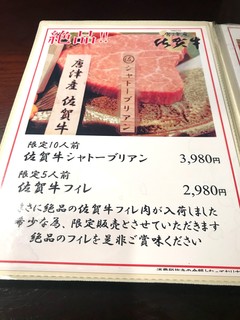 絶品!!
唐津産
佐賀牛
唐津産 佐賀牛
シャトーブリアン
限定10人前
佐賀牛シャトーブリアン 3,980円
限定5人前
佐賀牛フィレ 2,980円
まさに絶品の佐賀牛フィレ肉が入荷しました
希少な為、限定販売とさせていただきます
絶品のフィレを是非ご賞味ください